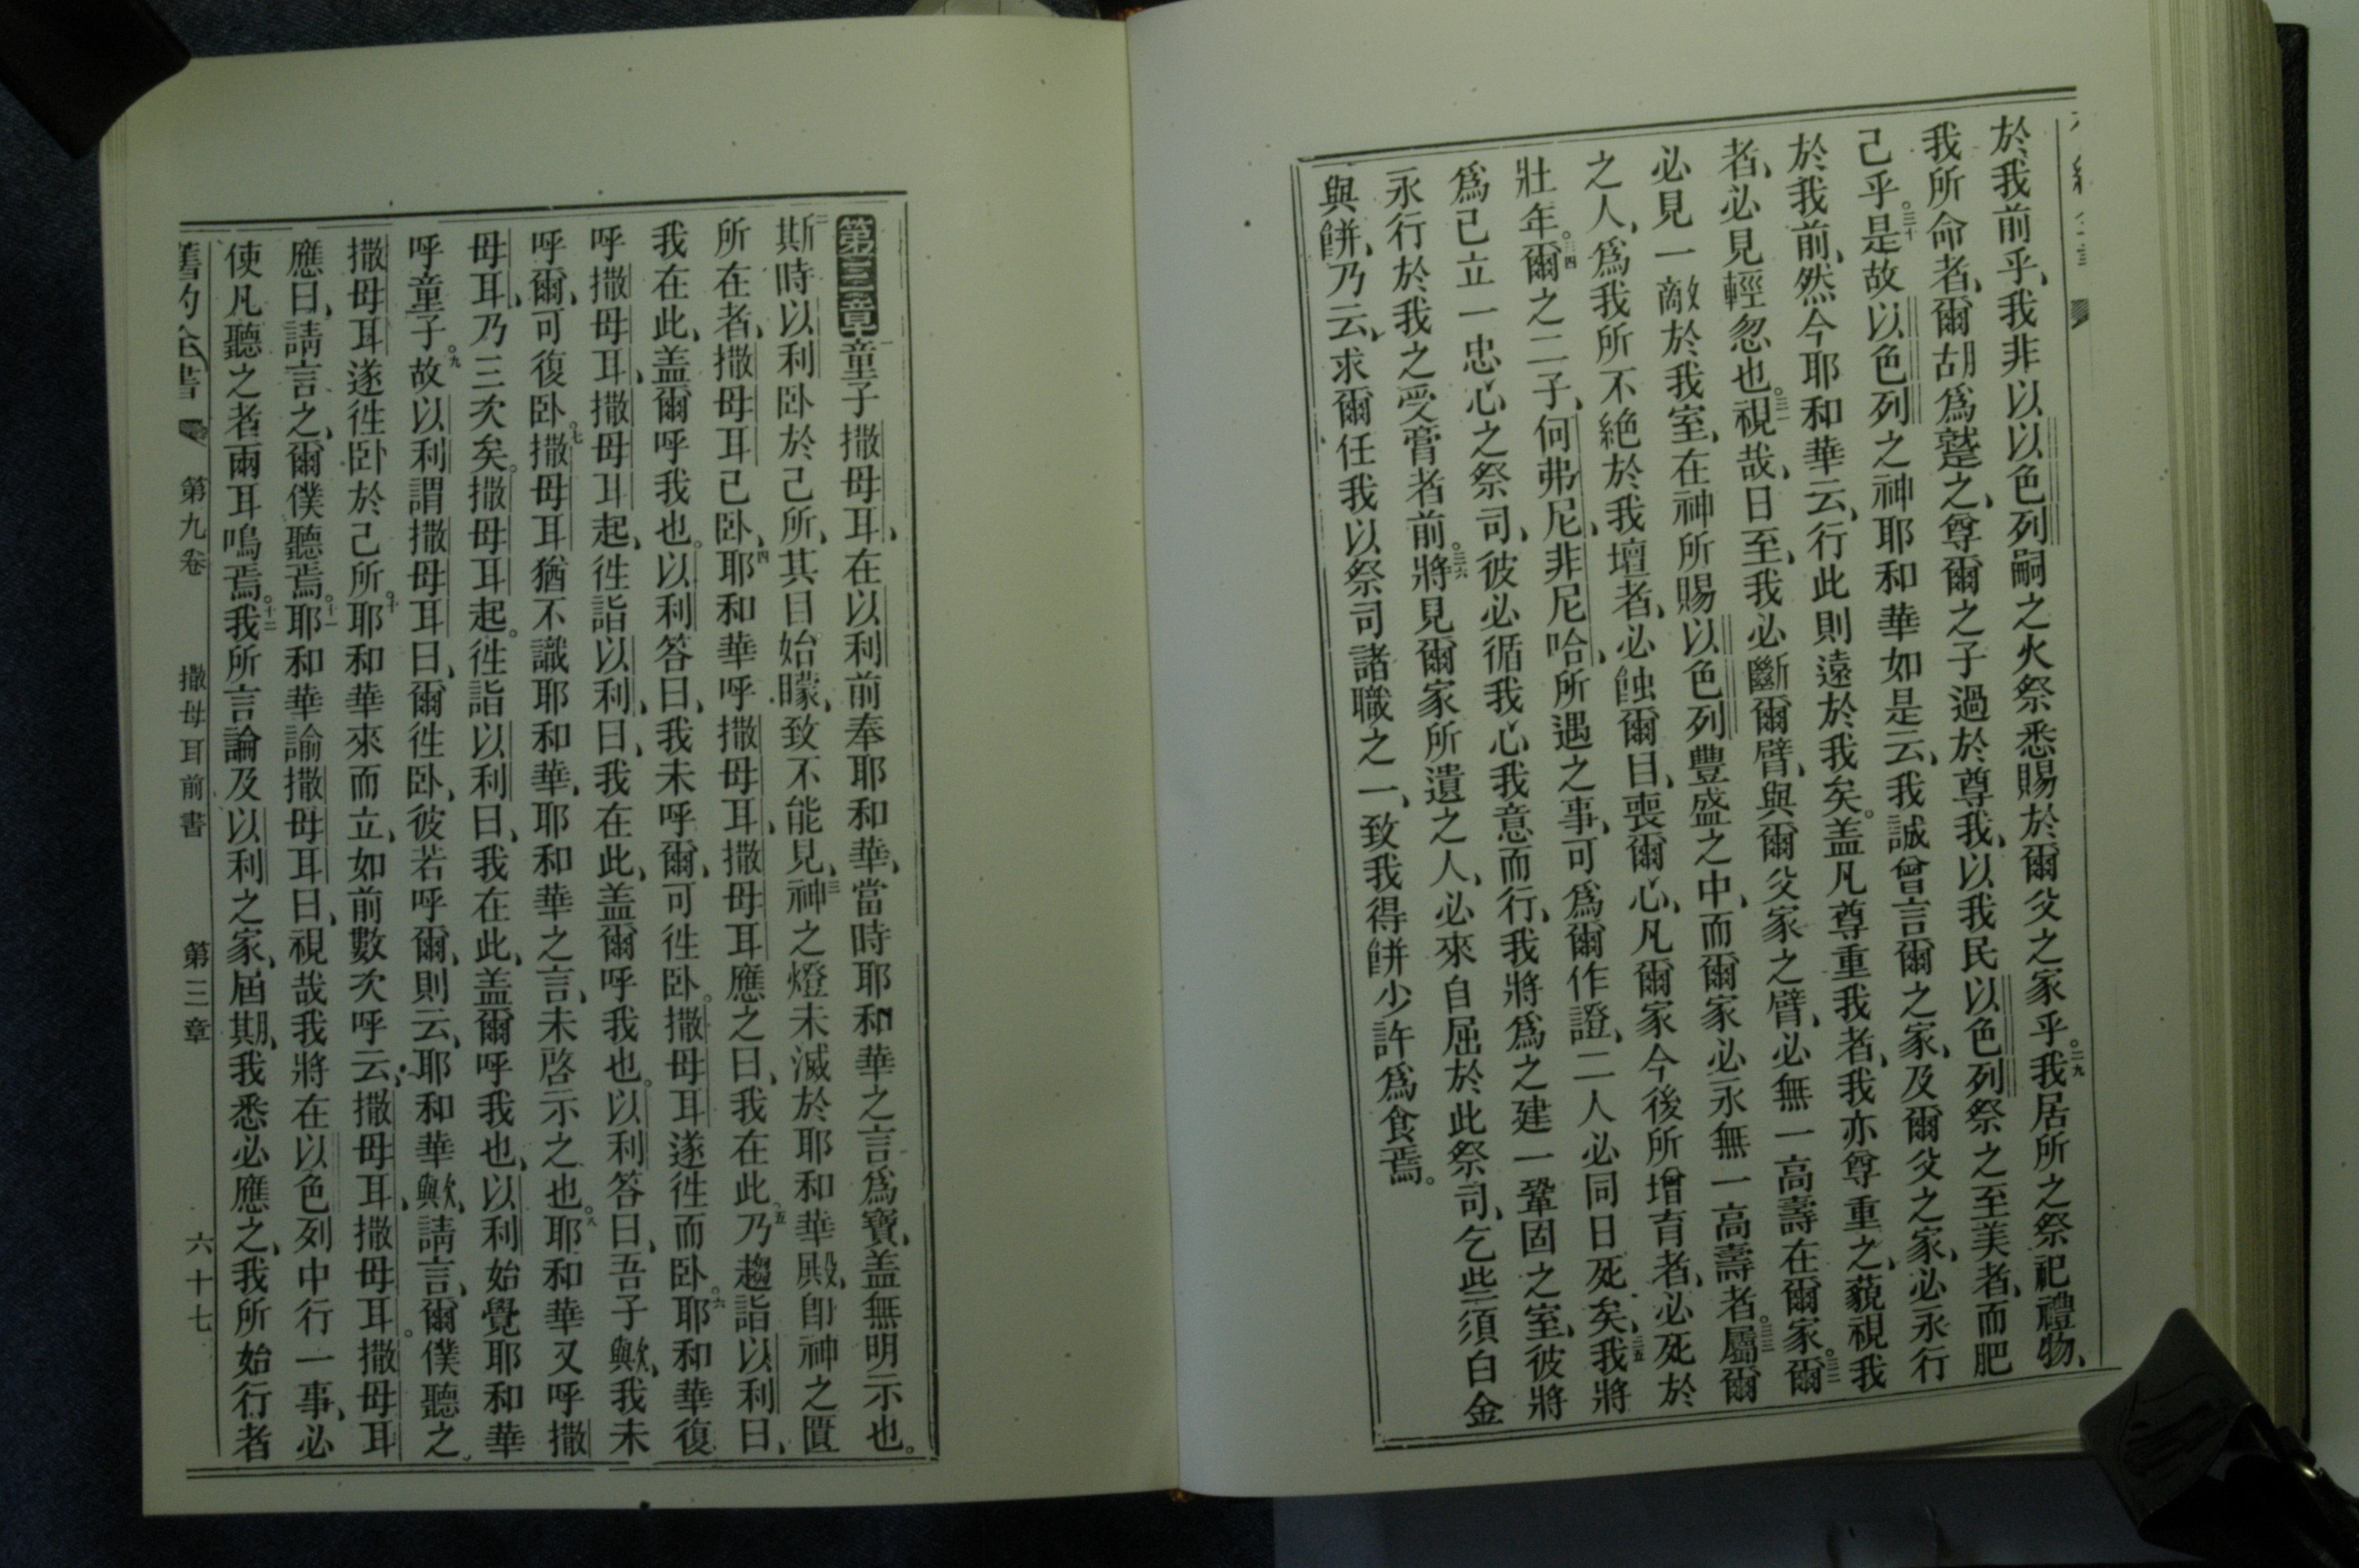 於我前乎、我非以以色列嗣之火祭悉賜於爾父之家乎。二九我居所之祭祀禮物、
我所命者、爾胡爲躄之、尊爾之子過於尊我、以我民以色列祭之至美者、而肥
己乎。三十是故以色列之神耶和華如是云、我誠曾言爾之家、及爾父之家、必永行
於我前、然今耶和華云、行此則遠於我矣。盖凡尊重我者、我亦尊重之、藐視我
者、必見輕忽也。三一視哉、日至、我必斷爾臂、與爾父家之臂、必無一高壽在爾家。三二爾
必見一敵於我室、在神所賜以色列豐盛之中、而爾家必永無一高壽者。三三屬爾
之人、爲我所不絕於我壇者、必蝕爾目、喪爾心、凡爾家今後所增育者、必死於
壯年。三四爾之二子、何弗尼、非尼哈、所遇之事、可爲爾作證、二人必同日死矣、三五我將
爲已立一忠心之祭司、彼必循我心我意而行、我將爲之建一鞏固之室、彼將
永行於我之受膏者前。三六將見爾家所遺之人、必來自屈於此祭司、乞些須白金
與餅、乃云、求爾任我以祭司諸職之一、致我得餅少許爲食焉。
第三章 一童子撒母耳、在以利前奉耶和華、當時耶和華之言爲寶、盖無明示也。
二斯時以利卧於己所、其目始矇、致不能見、三神之燈未滅於耶和華殿、卽神之匱
所在者、撒母耳己卧、四耶和華呼撒母耳、撒母耳應之曰、我在此、五乃趨詣以利曰、
我在此、盖爾呼我也。以利答曰、我未呼爾、可徃卧。撒母耳遂徃而卧。六耶和華復
呼撒母耳、撒母耳起、徃詣以利、曰、我在此、盖爾呼我也。以利答曰、吾子歟、我未
呼爾、可復卧。七撒母耳猶不識耶和華、耶和華之言、未啓示之也。八耶和華又呼撒
母耳、乃三次矣。撒母耳起。徃詣以利曰、我在此、盖爾呼我也、以利始覺耶和華
呼童子。九故以利謂撒母耳曰、爾徃卧、彼若呼爾、則云、耶和華歟、請言、爾僕聽之。
撒母耳遂徃卧於己所。十耶和華來而立、如前數次呼云、撒母耳、撒母耳。撒母耳
應曰、請言之、爾僕聽焉。十一耶和華諭撒母耳曰、視哉我將在以色列中行一事、必
使凡聽之者兩耳鳴焉。十二我所言論及以利之家、屆期、我悉必應之、我所始行者
舊約全書 第九卷 撒母耳前書 第三章 六十七